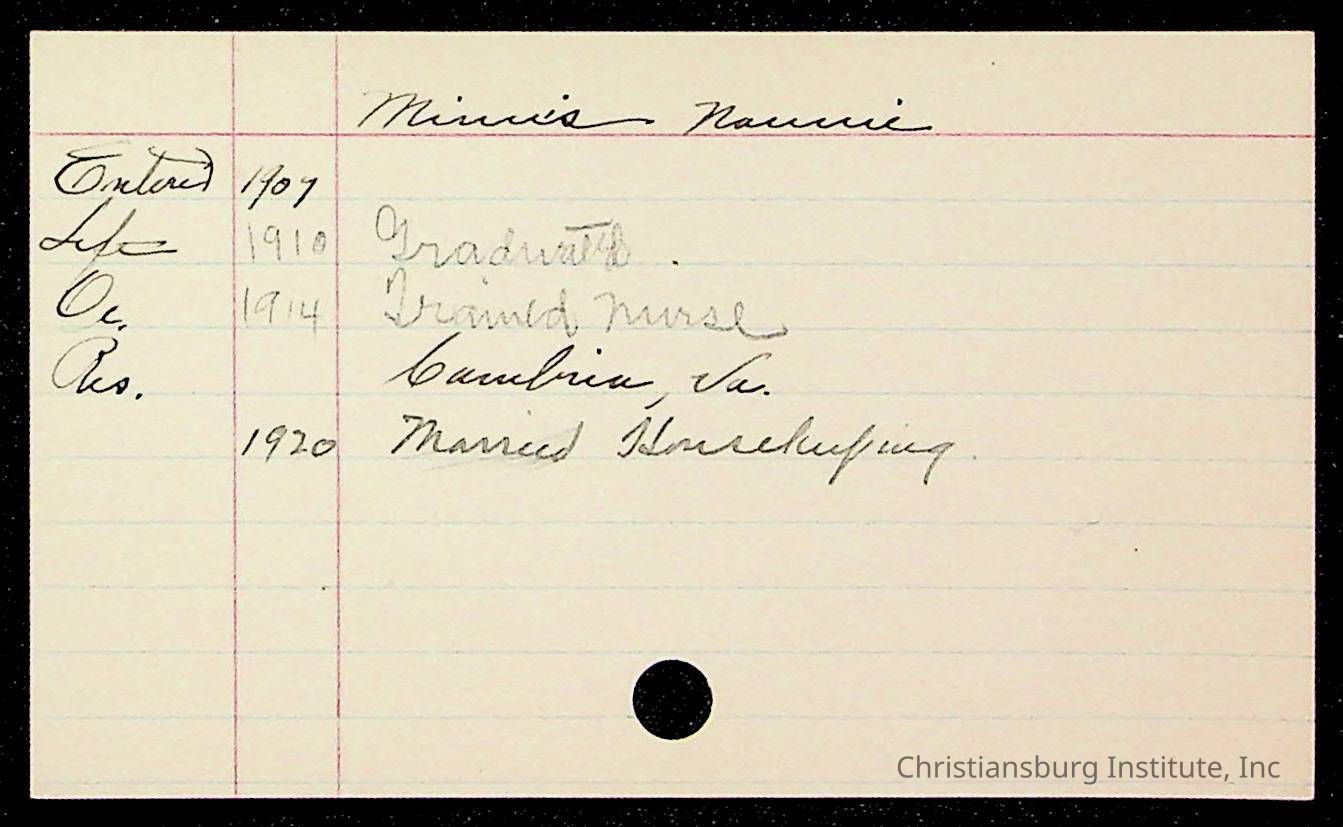 Minnis Nannie
Entered 1907
Left 1910 Graduated.
Oc. 1914 Trained Nurse
Res. Cambria, Va.
1920 Married Housekeeping
Christiansburg Institute, Inc